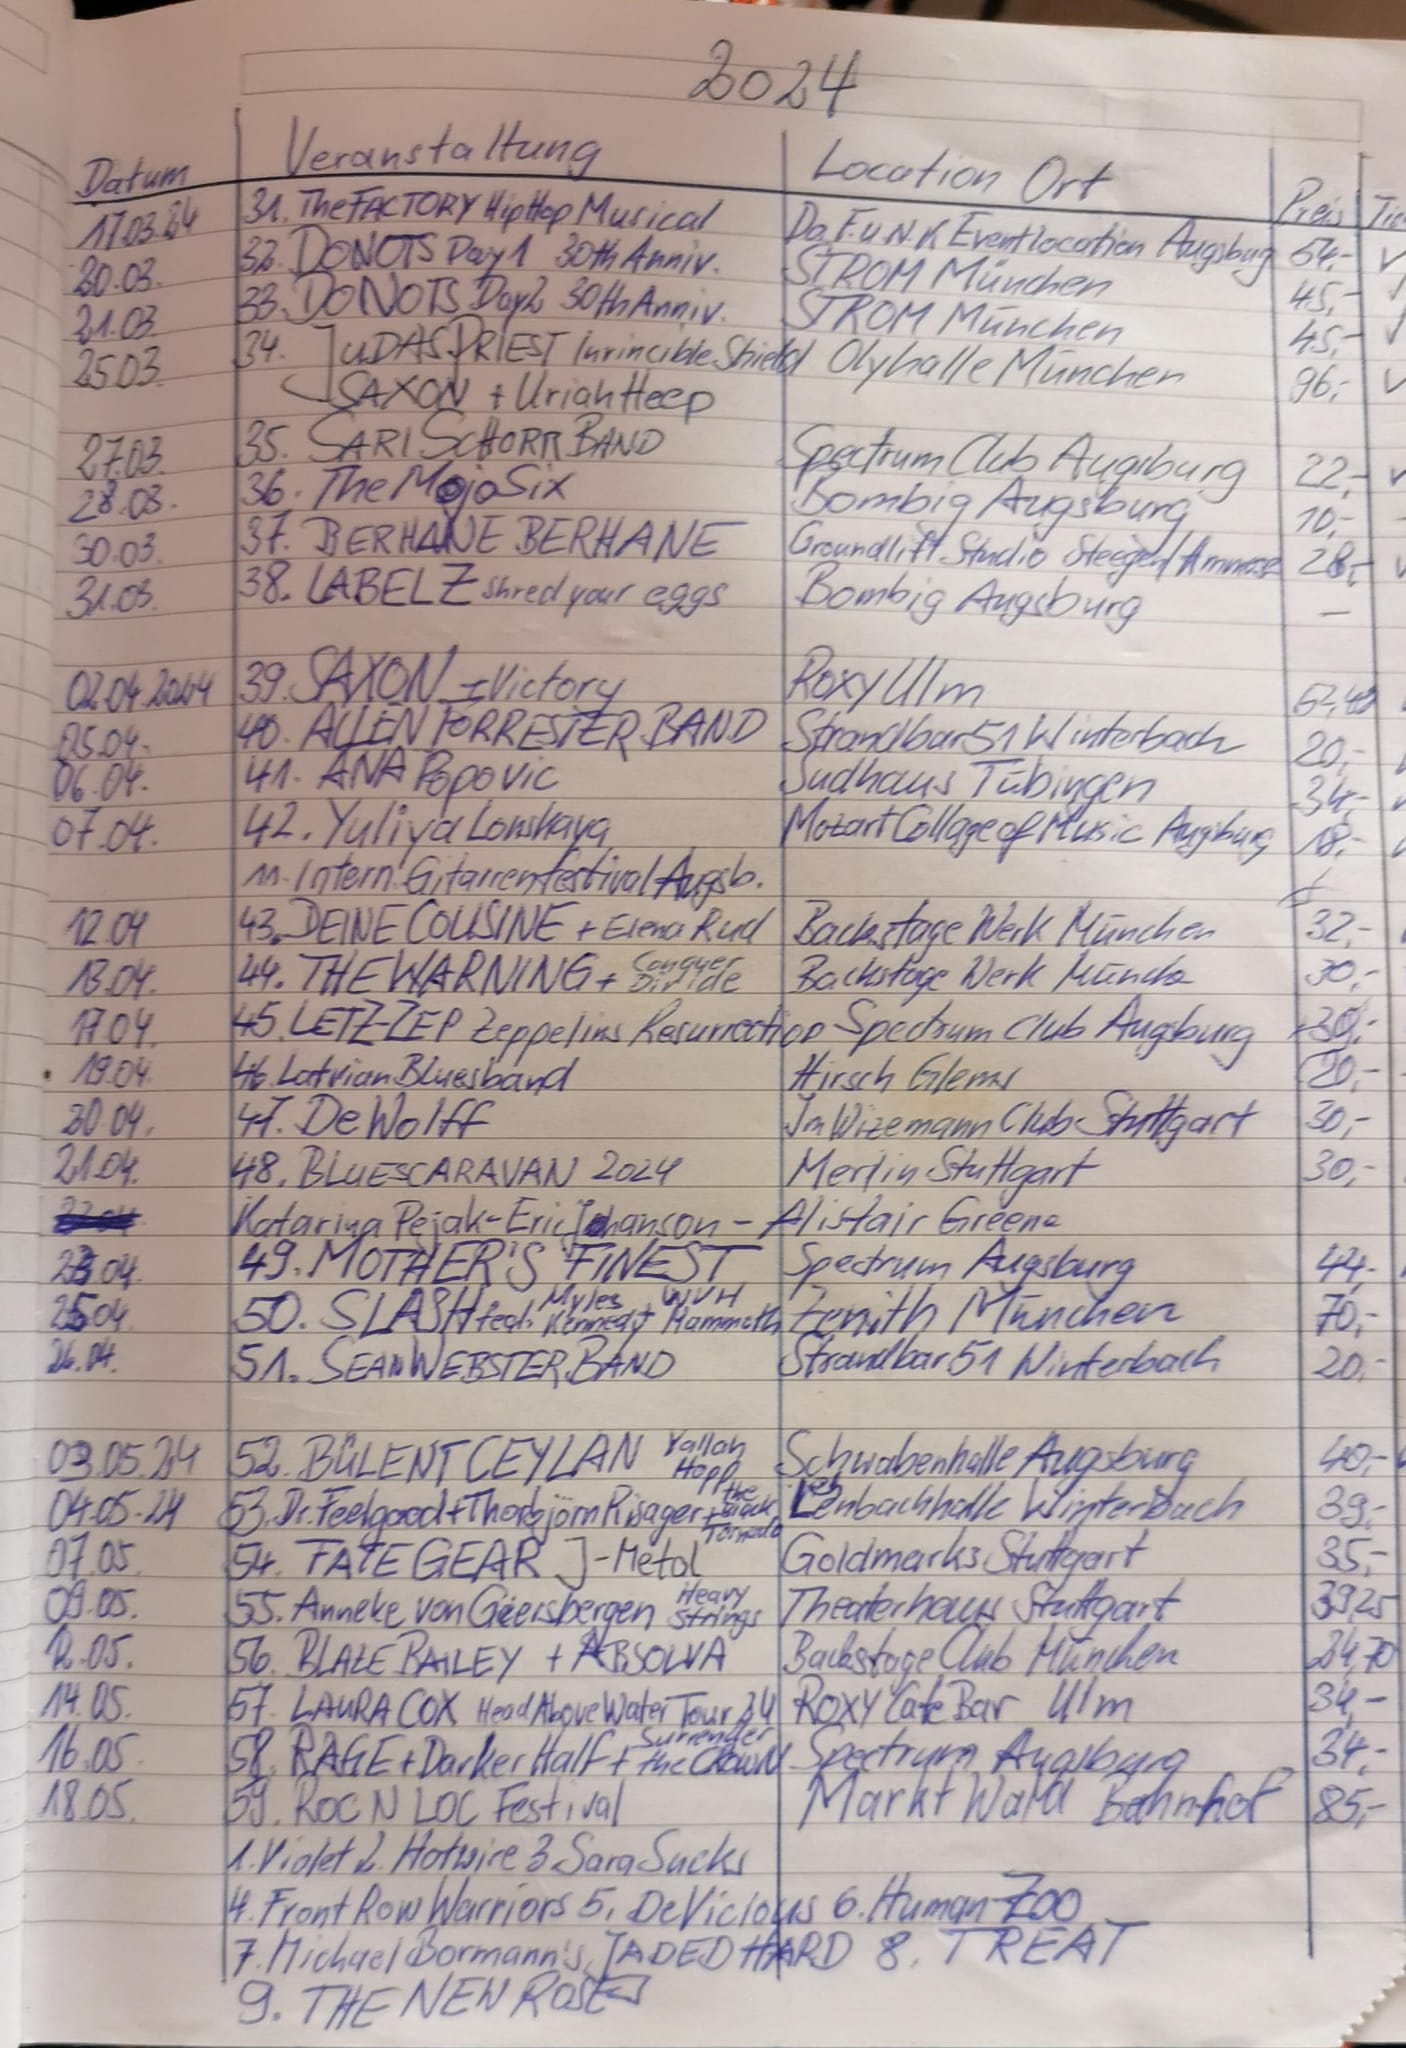 2024
Datum Veranstaltung Location Ort Preis
17.03.24 31. The FACTORY HipHop Musical Da F.u.N.K Eventlocation Augsburg 54,-
20.03. 32. DONOTS Day 1 30th Anniv. STROM München 45,-
21.03. 33. DONOTS Day 2 30th Anniv. STROM München 45,-
25.03. 34. JUDAS PRIEST Invincible Shield Olyhalle München 96,-
SAXON + Uriah Heep
27.03. 35. SARI SCHORR BAND Spectrum Club Augsburg 22,-
28.03. 36. The Mojo Six Bombig Augsburg 10,-
30.03. 37. BERHANE BERHANE Groundlift Studio Stegen/Ammersee 28,-
31.03. 38. LABEL Z shred your eggs Bombig Augsburg —
02.04.2024 39. SAXON + Victory Roxy Ulm
05.04. 40. ALLEN FORRESTER BAND Strandbar 51 Winterbach 20,-
06.04. 41. ANA Popovic Sudhaus Tübingen 34,-
07.04. 42. Yuliya Lonskaya Mozart Collage of Music Augsburg 18,-
11. Intern. Gitarrenfestival Augsb.
12.04 43. DEINE COUSINE + Elena Rud Backstage Werk München 32,-
13.04. 44. THE WARNING + Conquer Divide Backstage Werk Münche 30,-
17.04. 45. LETZ-ZEP Zeppelins Resurrection Spectrum Club Augsburg 30,-
19.04. 46. Latvian Bluesband Hirsch Glems 20,-
20.04. 47. DeWolff Im Wizemann Club Stuttgart 30,-
21.04. 48. BLUESCARAVAN 2024 Merlin Stuttgart 30,-
Katarina Pejak - Eric Johanson - Alistair Greene
23.04. 49. MOTHER'S FINEST Spectrum Augsburg 44,-
25.04 50. SLASH feat. Myles Kennedy + WVH Mammoth Zenith München 70,-
26.04. 51. SEAN WEBSTER BAND Strandbar 51 Winterbach 20,-
03.05.24 52. BÜLENT CEYLAN Yallah Hopp Schwabenhalle Augsburg 40,-
04.05.24 53. Dr. Feelgood + Thorbjörn Risager + the Black Tornado Lenbachhalle Winterbach 39,-
07.05. 54. FATE GEAR J-Metal Goldmarks Stuttgart 35,-
09.05. 55. Anneke von Giersbergen Heavy Strings Theaterhaus Stuttgart 39,25
12.05. 56. BLAZE BAILEY + ABSOLVA Backstage Club München 24,70
14.05. 57. LAURA COX Head Above Water Tour 24 ROXY Cafe Bar Ulm 34,-
16.05. 58. RAGE + Darker Half + Surrender the CROWN Spectrum Augsburg 34,-
18.05. 59. ROC N LOC Festival Markt Wald Bahnhof 85,-
1. Violet 2. Hotwire 3 Sara Sucks
4. Front Row Warriors 5. DeVicious 6. Human-Zoo
7. Michael Bormann's JADED HARD 8. TREAT
9. THE NEW ROSES